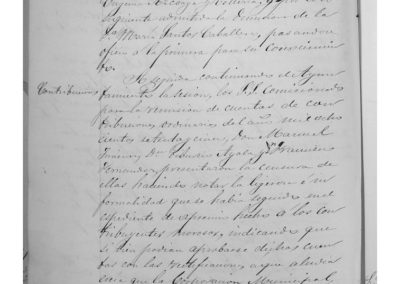 siguiente admitida la dimision de la
Dª Maria Santos Caballero, pasandose
oficio a la primera para su conocimien
to.
Contribuciones
En seguida continuando el Ayun
tamiento la sesion, los S.S. Comisionados
para la revision de cuentas de con
tribuciones ordinarias del año mil ocho
cientos setenta y cinco, Don Manuel
Don Eduardo Ayala y Francisco
Fernandez, presentaron la censura de
ellas haciendo notar la ligereza é in
formalidad que se habia seguido en el
espediente de apremio hecho a los con
tribuyentes morosos, indicando que
si bien podian aprobarse dichas cuen
tas con las rectificaciones a que aludia
seria que la Corporacion Municipal